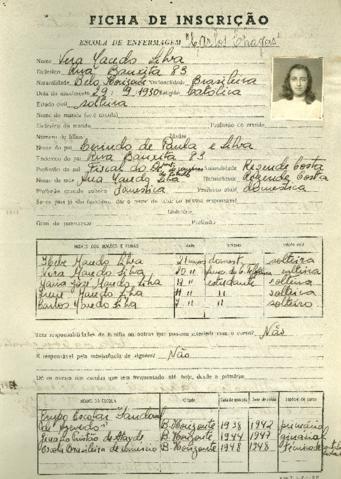 FICHA DE INSCRIÇÃO
ESCOLA DE ENFERMAGEM "Carlos Chagas"
Nome Vera Macedo Silva
Endereço Rua Bauxita 83
Naturalidade Belo Horizonte Nacionalidade Brasileira
Data do nascimento 29-9-1930 Religião católica
Estado civil solteira
Nome do marido (se é casada)
Endereço do marido Profissão do marido
Número de filhos Idades
Nome do pai de Paula e Silva
Endereço do pai Rua Bauxita 83
Profissão do pai Fiscal do Naturalidade Rezende Costa
Nome da mãe Macedo Silva Naturalidade Rezende Costa
Profissão quando solteira Domestica Profissão atual domestica
Se os pais já são falecidos, dar o nome de
Endereço
Grau de parentesco Profissão
NOMES DOS IRMÃOS E IRMÃS IDADE ESTADO CIVIL
Macedo Silva 21 anos domest. solteira
Vera Macedo Silva 20 " solteira
Maria José Macedo Silva estudante solteira
Macedo Silva " " solteira
Carlos Macedo Silva " " solteiro
Tem responsabilidades de família ou outras que possam interferir com o curso? Não
É responsável pela subsistência de alguém? Não
Dê os nomes das escolas que tem frequentado até hoje, desde a primária
NOME DA ESCOLA Cidade
Grupo Escolar "Sandoval
de Azevedo" B. Horizonte 1938 1942 primário
Ginásio Tristão de Ataíde B. Horizonte 1944 1947 ginasial
Escola Brasileira de Comércio B. Horizonte 1948 1948